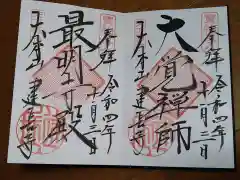 奉拝
令和四年
十一月三日
最明寺殿
大本山 建長寺
奉拝
令和四年
十一月三日
大覚禅師
大本山 建長寺